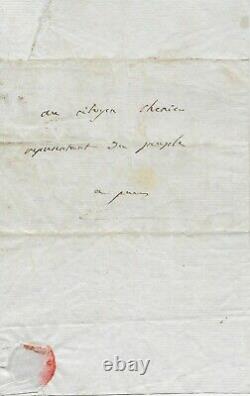 au citoyen Chenier
representant du peuple
a paris
ebay